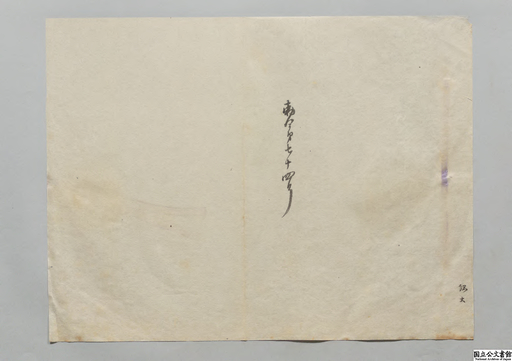 勅令第七十四号
国立公文書館
National Archives of Japan